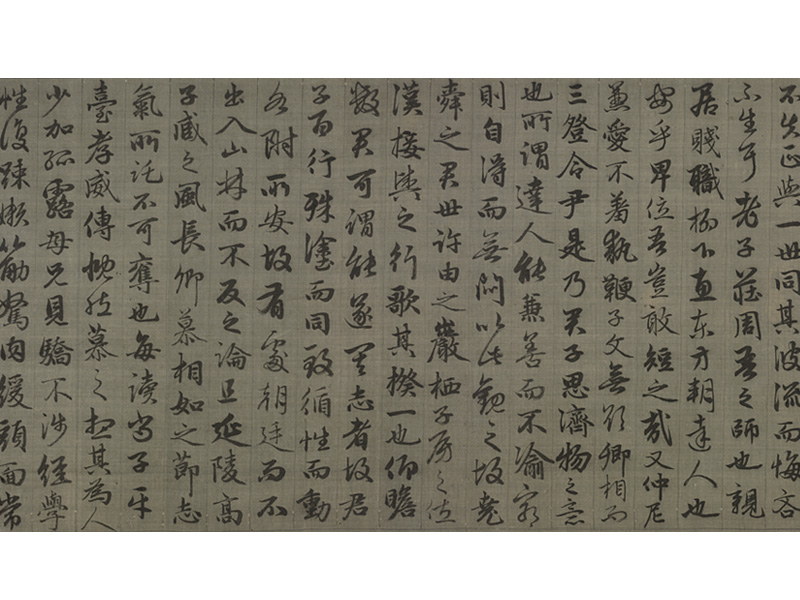 不失正與一世同其波流而悔吝
不生耳老子莊周吾之師也親
居賤職柳下惠东方朔達人也
安乎卑位吾豈敢短之哉又仲尼
兼愛不羞執鞭子文無欲卿相而
三登令尹是乃君子思濟物之意
也所謂達人能兼善而不渝窮
則自得而無悶以此觀之故堯
舜之君世許由之巖栖子房之佐
漢接輿之行歌其揆一也仰瞻
數君可謂能遂其志者故君
子百行殊塗而同致循性而動
各附所安故有處朝廷而不
出入山林而不反之論且延陵高
子臧之風長卿慕相如之節志
氣所託不可奪也每讀尚子平
臺孝威傳慨然慕之想其為人
少加孤露母兄見驕不涉經學
性復疎嬾筋駑肉緩頭面常